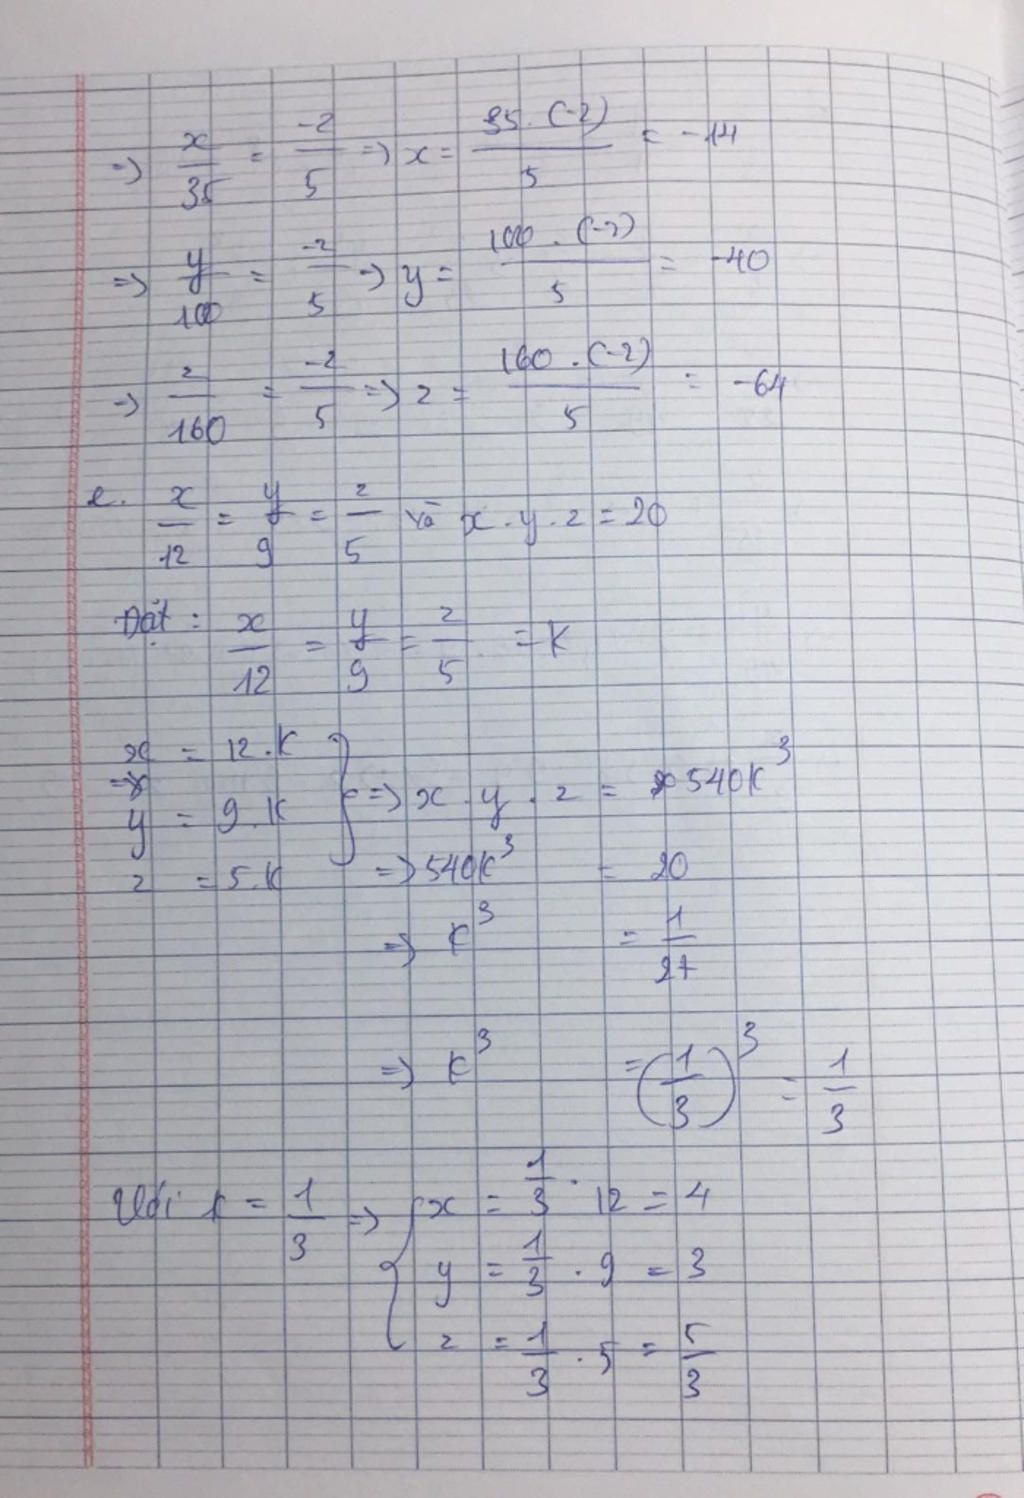 => x/35 = -2/5 => x = 35 . (-2)/5 = -14
=> y/100 = -2/5 => y = 100 . (-2)/5 = -40
=> z/160 = -2/5 => z = 160 . (-2)/5 = -64
e. x/12 = y/9 = z/5 và x . y . z = 20
Đặt : x/12 = y/9 = z/5 = K
x = 12 . K
=> y = 9 . K } => x . y . z = 540K³
z = 5 . K => 540K³ = 20
=> K³ = 1/27
=> K³ = (1/3)³ = 1/3
Với K = 1/3 => { x = 1/3 . 12 = 4
y = 1/3 . 9 = 3
z = 1/3 . 5 = 5/3